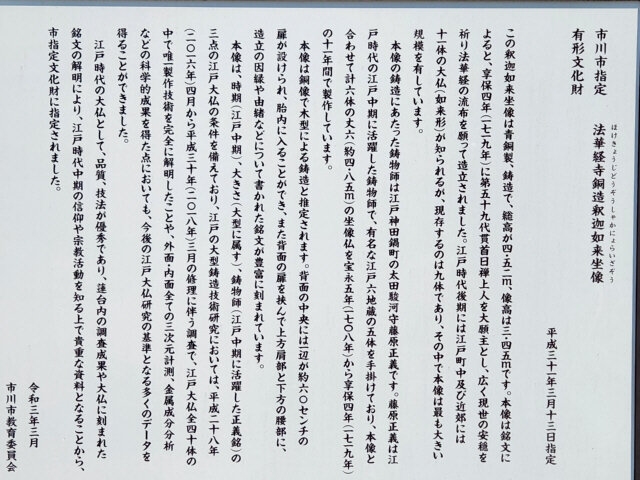 市川市指定
有形文化財
法華経寺銅造釈迦如来坐像
ほけきょうじどうぞうしゃかにょらいざぞう
平成三十一年三月十三日指定
この釈迦如来坐像は青銅製、鋳造で、総高が四・五二m、像高は三・四五mです。本像は銘文に
よると、享保四年(一七一九年)に第五十九代貫首日禅上人を大願主とし、広く現世の安穏を
祈り法華経の流布を願って造立されました。江戸時代後期には江戸町中及び近郊には
十一体の大仏(如来形)が知られるが、現存するのは九体であり、その中で本像は最も大きい
規模を有しています。
本像の鋳造にあたった鋳物師は江戸神田鍋町の太田駿河守藤原正義です。藤原正義は江
戸時代の江戸中期に活躍した鋳物師で、有名な江戸六地蔵の五体を手掛けており、本像と
合わせて計六体の丈六(約四・八五m)の坐像仏を宝永五年(一七〇八年)から享保四年(一七一九年)
の十一年間で製作しています。
本像は銅像で木型による鋳造と推定されます。背面の中央には一辺が約六〇センチの
扉が設けられ、胎内に入ることができ、また背面の扉を挟んで上方肩部と下方の腰部に、
造立の因縁や由緒などについて書かれた銘文が豊富に刻まれています。
本像は、時期(江戸中期)、大きさ(大型に属す)、鋳物師(江戸中期に活躍した正義銘)の
三点の江戸大仏の条件を備えており、江戸の大型鋳造技術研究においては、平成二十八年
(二〇一六年)四月から平成三十年(二〇一八年)三月の修理に伴う調査で、江戸大仏全四十体の
中で唯一製作技術を完全に解明したことや、外面・内面全ての三次元計測、金属成分分析
などの科学的成果を得た点においても、今後の江戸大仏研究の基準となる多くのデータを
得ることができました。
江戸時代の大仏として、品質、技法が優秀であり、蓮台内の調査成果や大仏に刻まれた
銘文の解明により、江戸時代中期の信仰や宗教活動を知る上で貴重な資料となることから、
市指定文化財に指定されました。
令和三年三月
市川市教育委員会